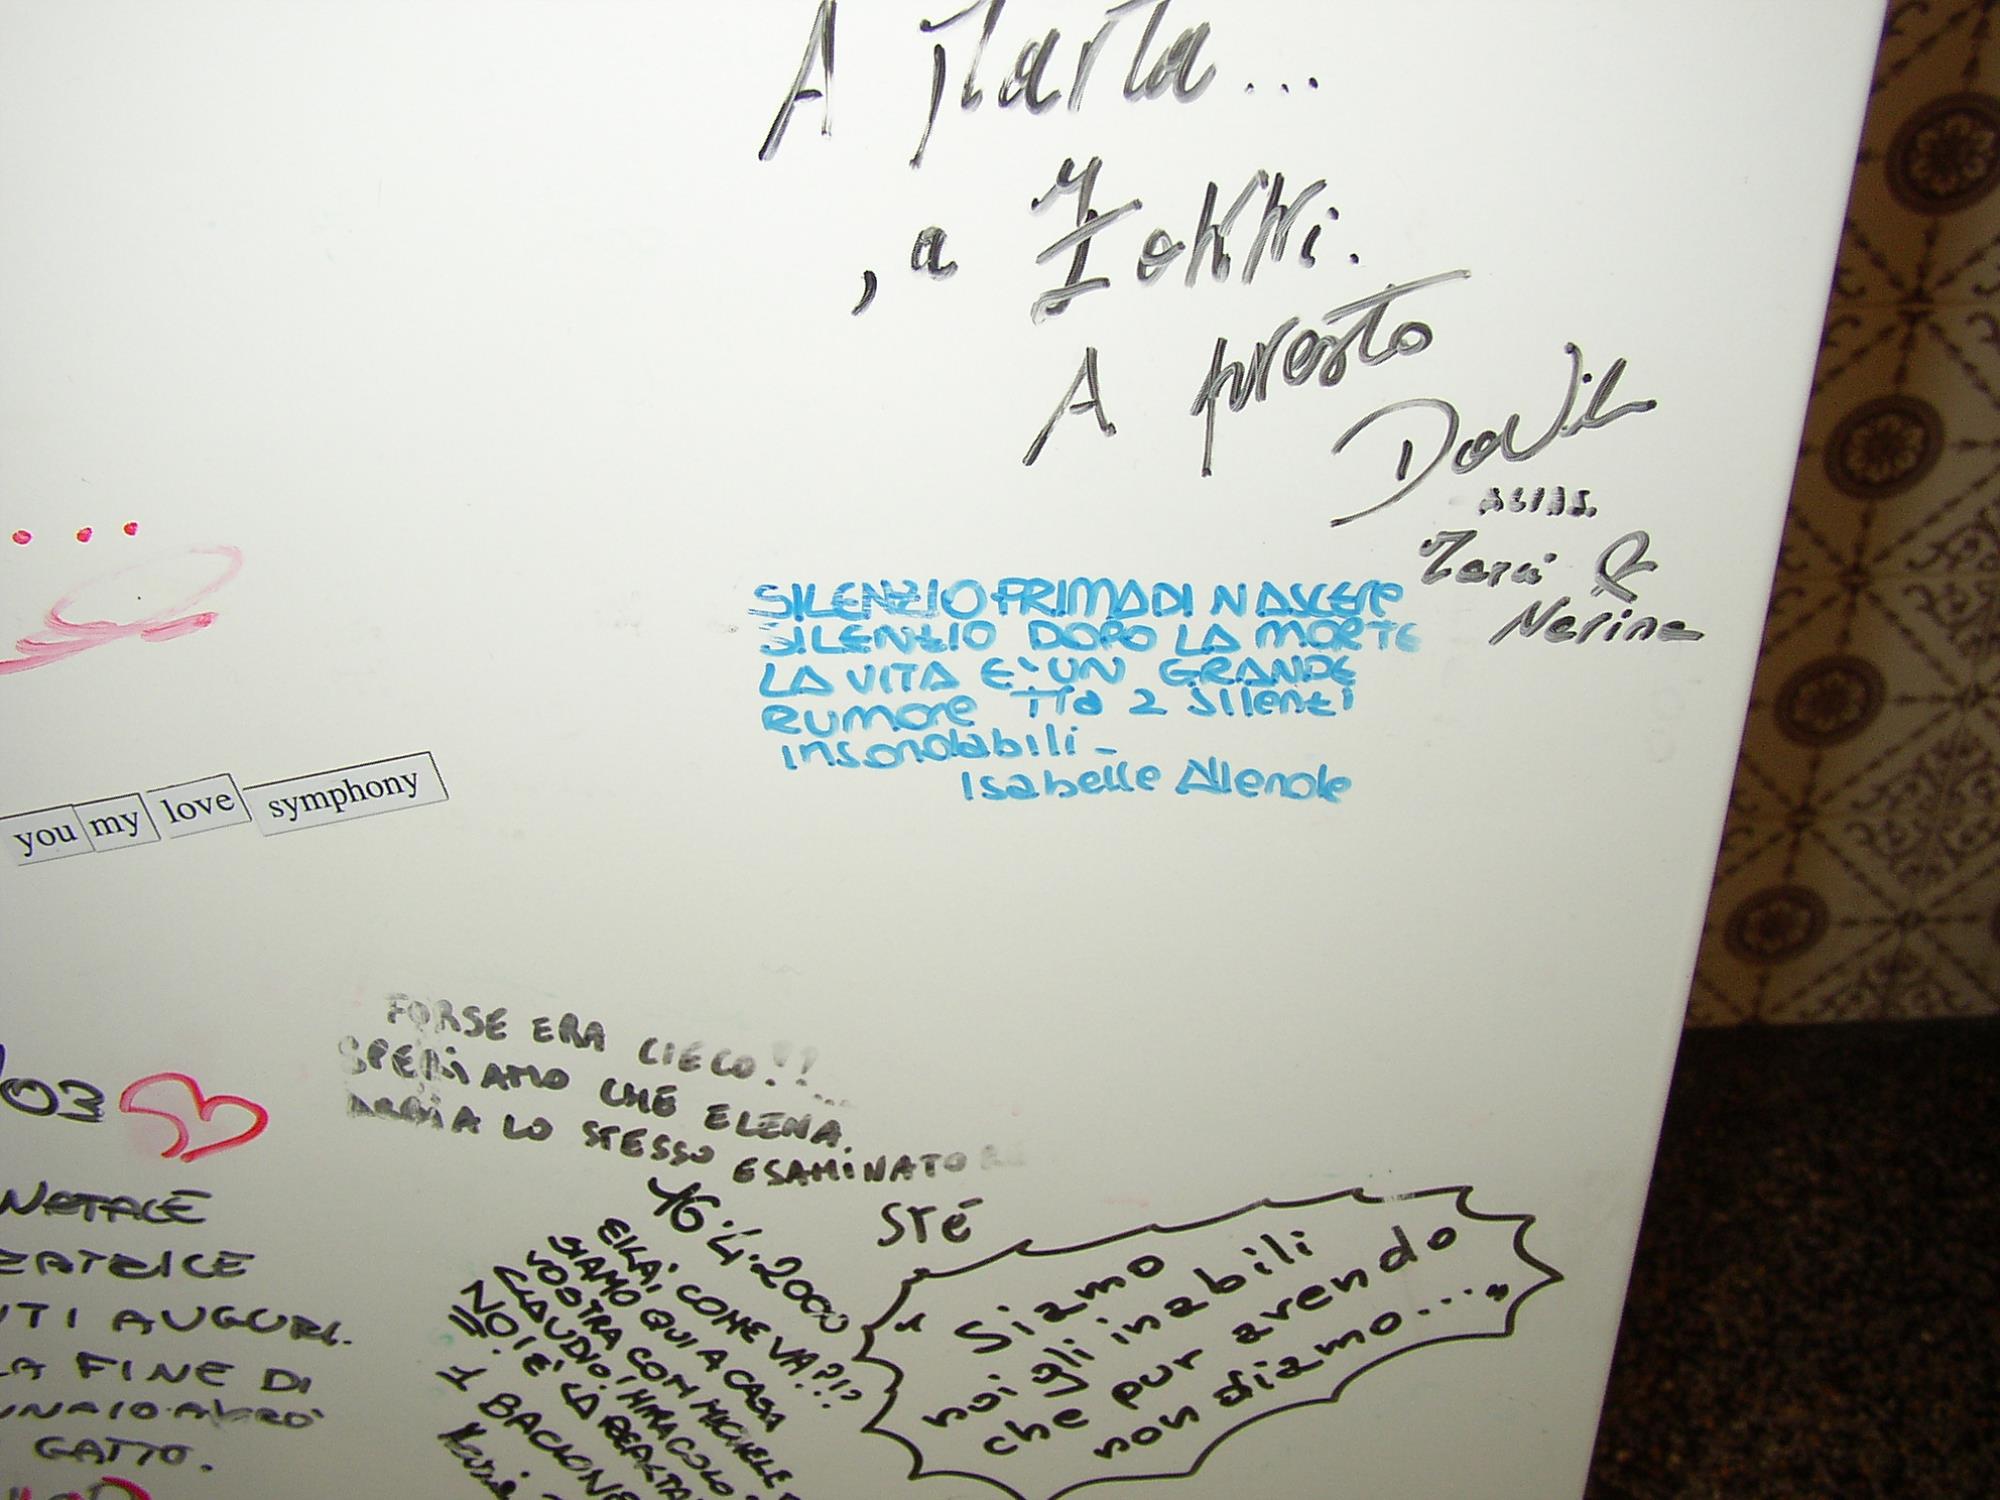 A Marta...
, a Zokki.
A presto
Zora &
Nerina
SILENZIO PRIMA DI NASCERE
SILENZIO DOPO LA MORTE
LA VITA E' UN GRANDE
RUMORE TRA 2 SILENZI
INSONDABILI-
Isabelle Allende
you my love symphony
FORSE ERA CIECO!!...
SPERIAMO CHE ELENA
ABBIA LO STESSO ESAMINATORE
STÉ
/03
NATALE
AUGURI.
LA FINE DI
GATTO.
16.4.2000
EILÀ, COME VA?!?
SIAMO QUI A CASA
VOSTRA CON MICHELE
CLAUDIO! MIRACOLO
NO! È LA REALTÀ
1 BACIONE
"Siamo
noi gli inabili
che pur avendo
non diamo..."